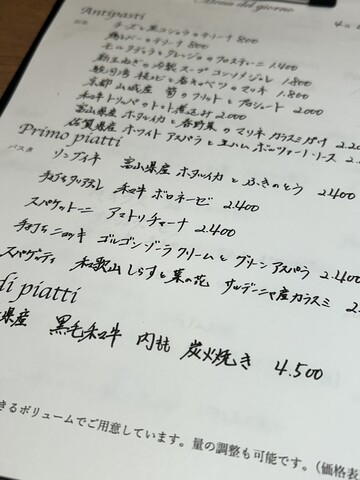 Menu del giorno
Antipasti
チーズと黒コショウのテリーナ 800
鶏レバーのテリーナ 800
モルタデッラとクレッシェの 1.400
新玉ねぎの冷製スープ コンソメジュレ 1.800
駿河湾 桜エビと春キャベツのマリネ 1.800
京都 山城産 筍のフリットとプロシュート 2.000
和牛トリッパのトマト煮込み 2.000
富山県産 ホタルイカと香野菜のマリネ カラスミがけ 2.200
佐賀県産 ホワイトアスパラと生ハム ボッツァーノソース
Primo piatti
パスタ
リングイネ 富山県産 ホタルイカとふきのとう 2.400
手打ちタリアテレ 和牛 ボロネーゼ 2.400
スパゲットーニ アマトリチャーナ 2.400
手打ちニョッキ ゴルゴンゾーラクリームとグリーンアスパラ 2.400
スパゲッティ 和歌山しらすと菜の花 サルデーニャ産カラスミ
di piatti
県産 黒毛和牛 内もも 炭火焼き 4.500
きるボリュームでご用意しています。量の調整も可能です。(価格表